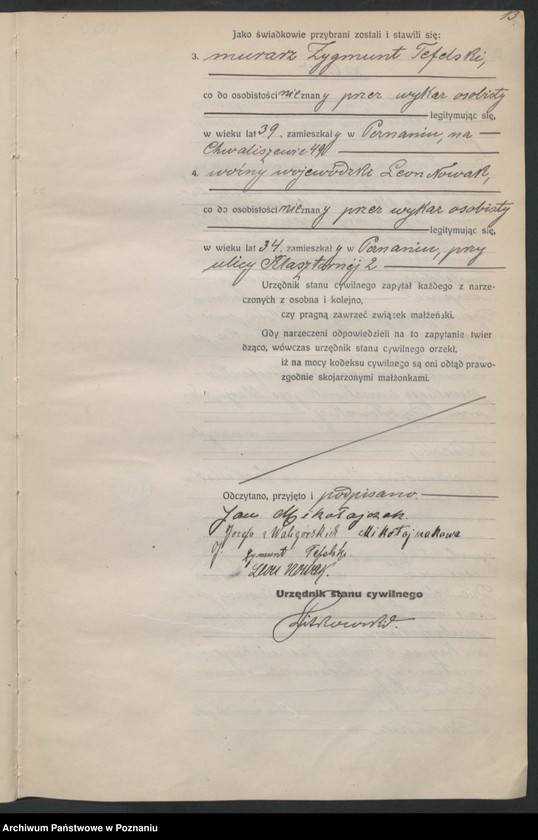 13
Jako świadkowie przybrani zostali i stawili się:
3. murarz Zygmunt Tefelski,
co do osobistości nie znany przez wykaz osobisty
legitymując się,
w wieku lat 39, zamieszkały w Poznaniu, na
Chwaliszewie 49
4. woźny wojewódzki Leon Nowak,
co do osobistości nie znany przez wykaz osobisty
legitymując się,
w wieku lat 34, zamieszkały w Poznaniu, przy
ulicy Klasztornej 2
Urzędnik stanu cywilnego zapytał każdego z narze-
czonych z osobna i kolejno,
czy pragną zawrzeć związek małżeński.
Gdy narzeczeni odpowiedzieli na to zapytanie twier
dząco, wówczas urzędnik stanu cywilnego orzekł,
iż na mocy kodeksu cywilnego są oni odtąd prawo-
zgodnie skojarzonymi małżonkami.
Odczytano, przyjęto i podpisano.
Jan Mikołajczak.
Józefa z Waligórskich Mikołajczakowa
Zygmunt Tefelski.
Leon Nowak.
Urzędnik stanu cywilnego
Archiwum Państwowe w Poznaniu